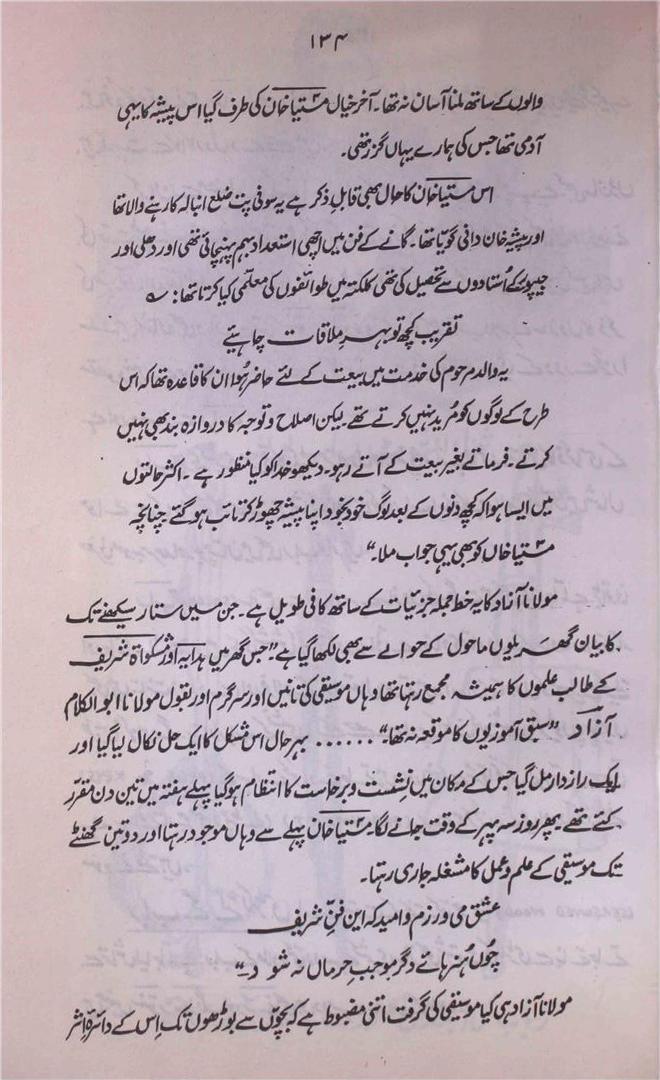 ۱۳۴
والوں کے ساتھ ملنا آسان نہ تھا۔ آخر خیال مسیتا خان کی طرف گیا اس پیشہ کا یہی
آدمی تھا جس کی ہمارے یہاں گزر تھی۔
اس مسیتا خان کا حال بھی قابلِ ذکر ہے یہ سونی پت ضلع انبالہ کا رہنے والا تھا
اور پیشہ خان دانی گویّا تھا۔ گانے کے فن میں اچھی استعداد بہم پہنچائی تھی اور دھلی اور
جیپور کے اُستادوں سے تحصیل کی تھی کلکتہ میں طوائفوں کی معلّمی کیا کرتا تھا: ؎
تقریب کچھ تو بہرِ ملاقات چاہئیے
یہ والد مرحوم کی خدمت میں بیعت کے لئے حاضر ہُوا ان کا قاعدہ تھا کہ اس
طرح کے لوگوں کو مُرید نہیں کرتے تھے۔ لیکن اصلاح و توجہ کا دروازہ بند بھی نہیں
کرتے۔ فرماتے بغیر بیعت کے آتے رہو۔ دیکھو خدا کو کیا منظور ہے۔ اکثر حالتوں
میں ایسا ہوا کہ کچھ دنوں کے بعد لوگ خود بخود اپنا پیشہ چھوڑ کر تائب ہو گئے چنانچہ
مسیتا خاں کو بھی یہی جواب ملا۔“
مولانا آزاد کا یہ خط جملہ جزئیات کے ساتھ کافی طویل ہے۔ جن میں ستار سیکھنے تک
کا بیان گھریلوں ماحول کے حوالے سے بھی لکھا گیا ہے۔ ”جس گھر میں ہدایہ اور مشکواۃ شریف
کے طالب علموں کا ہمیشہ مجمع رہتا تھا وہاں موسیقی کی تانیں اور سرگرم اور بقول مولانا ابوالکلام
آزاد ”سبق آموزیوں کا موقعہ نہ تھا۔“ ...... بہر حال اس مشکل کا ایک حل نکال لیا گیا اور
ایک راز دار مل گیا جس کے مکان میں نشست و برخاست کا انتظام ہو گیا پہلے ہفتہ میں تین دن مقرر
کئے تھے پھر روز سہ پہر کے وقت جانے لگا۔ مسیتا خان پہلے سے وہاں موجود رہتا اور دو تین گھنٹے
تک موسیقی کے علم و عمل کا مشغلہ جاری رہتا۔
عشق می ورزم و امید کہ این فنِّ شریف
چُوں ہُنرہائے دگر موجبِ حرماں نہ شود۔“
مولانا آزاد ہی کیا موسیقی کی گرفت اتنی مضبوط ہے کہ بچّوں سے بوڑھوں تک اِس کے دائرۂ اثر